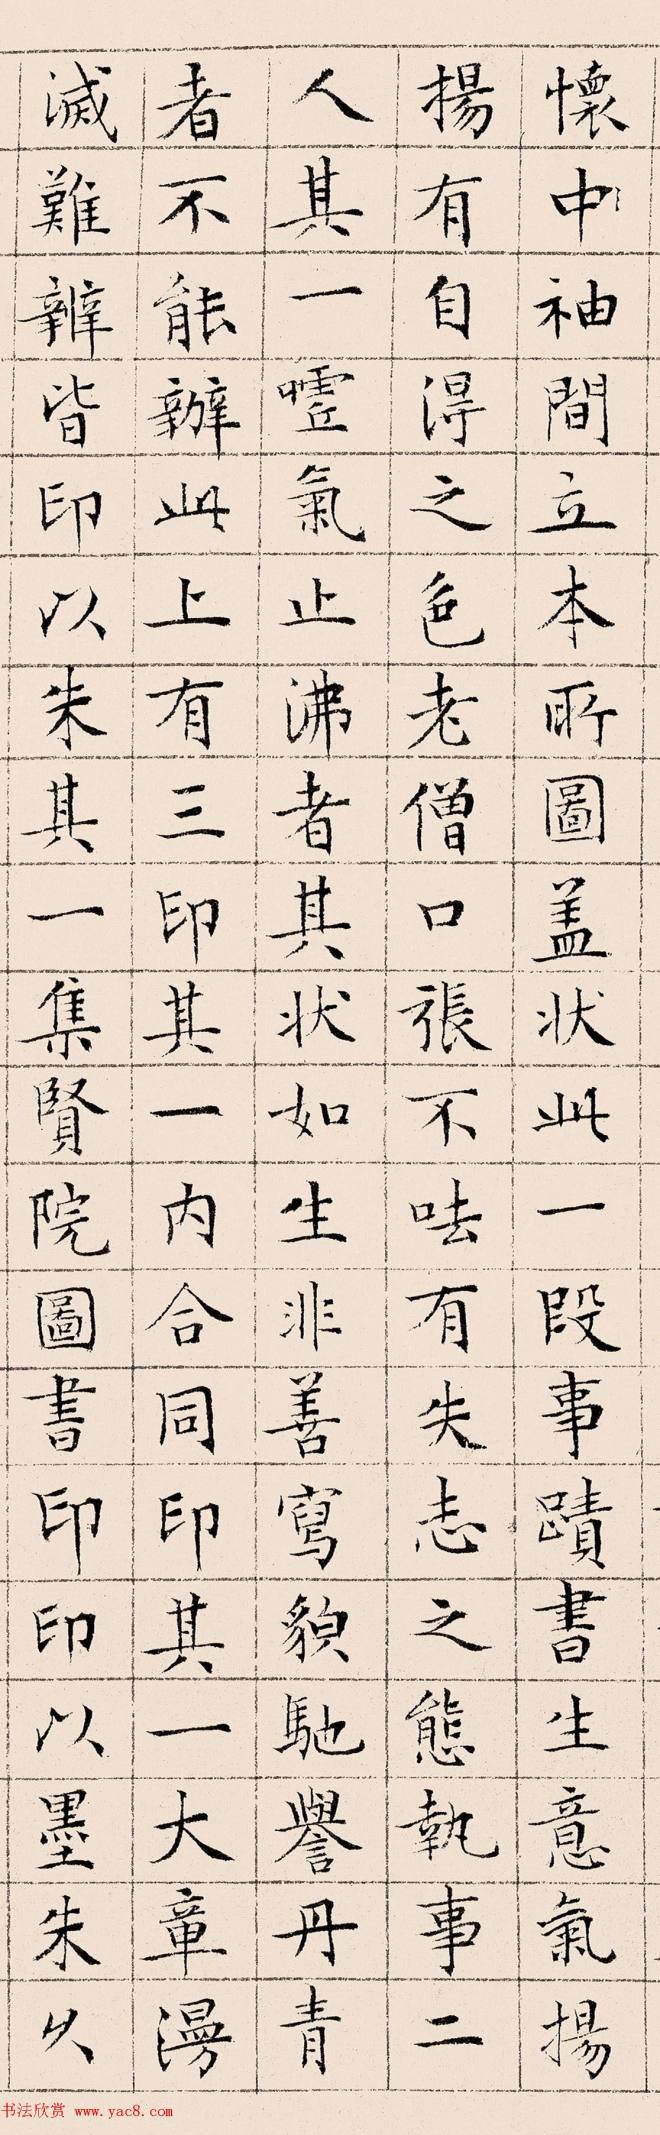 懷中袖間立本所圖盖状此一段事蹟書生意氣揚
揚有自得之色老僧口張不呿有失志之態執事二
人其一嘘氣止沸者其状如生非善寫貌馳譽丹青
者不能辦此上有三印其一内合同印其一大章漫
滅難辨皆印以朱其一集賢院圖書印印以墨朱久
书法欣赏 www.yac8.com